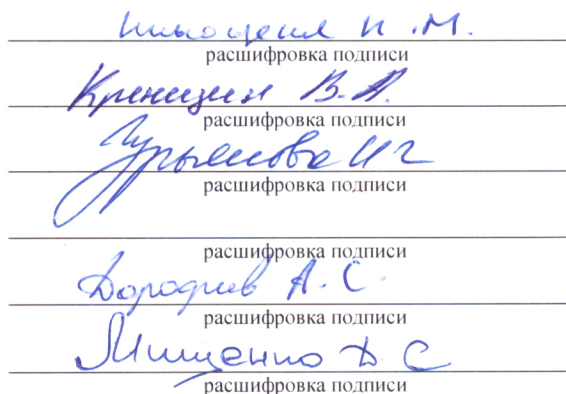 И.М.
расшифровка подписи
Креницин В.А.
расшифровка подписи
Гурьянова И Г
расшифровка подписи
расшифровка подписи
Дорофеев А.С.
расшифровка подписи
Мищенко Д С
расшифровка подписи